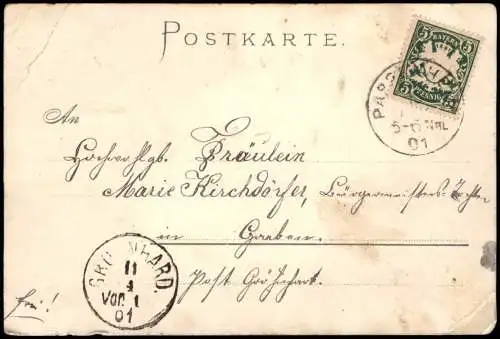 POSTKARTE.
5 BAYERN 5
PFENNIG
PASS
5-6 NM.
01
An
Hochwohlgb. Fräulein
Marie Kirchdörfer, Bürgermeisters-Tochter
in Graben.
Post Grönhart
GRO NHARD.
11
4
Vor. 1
01
frei!